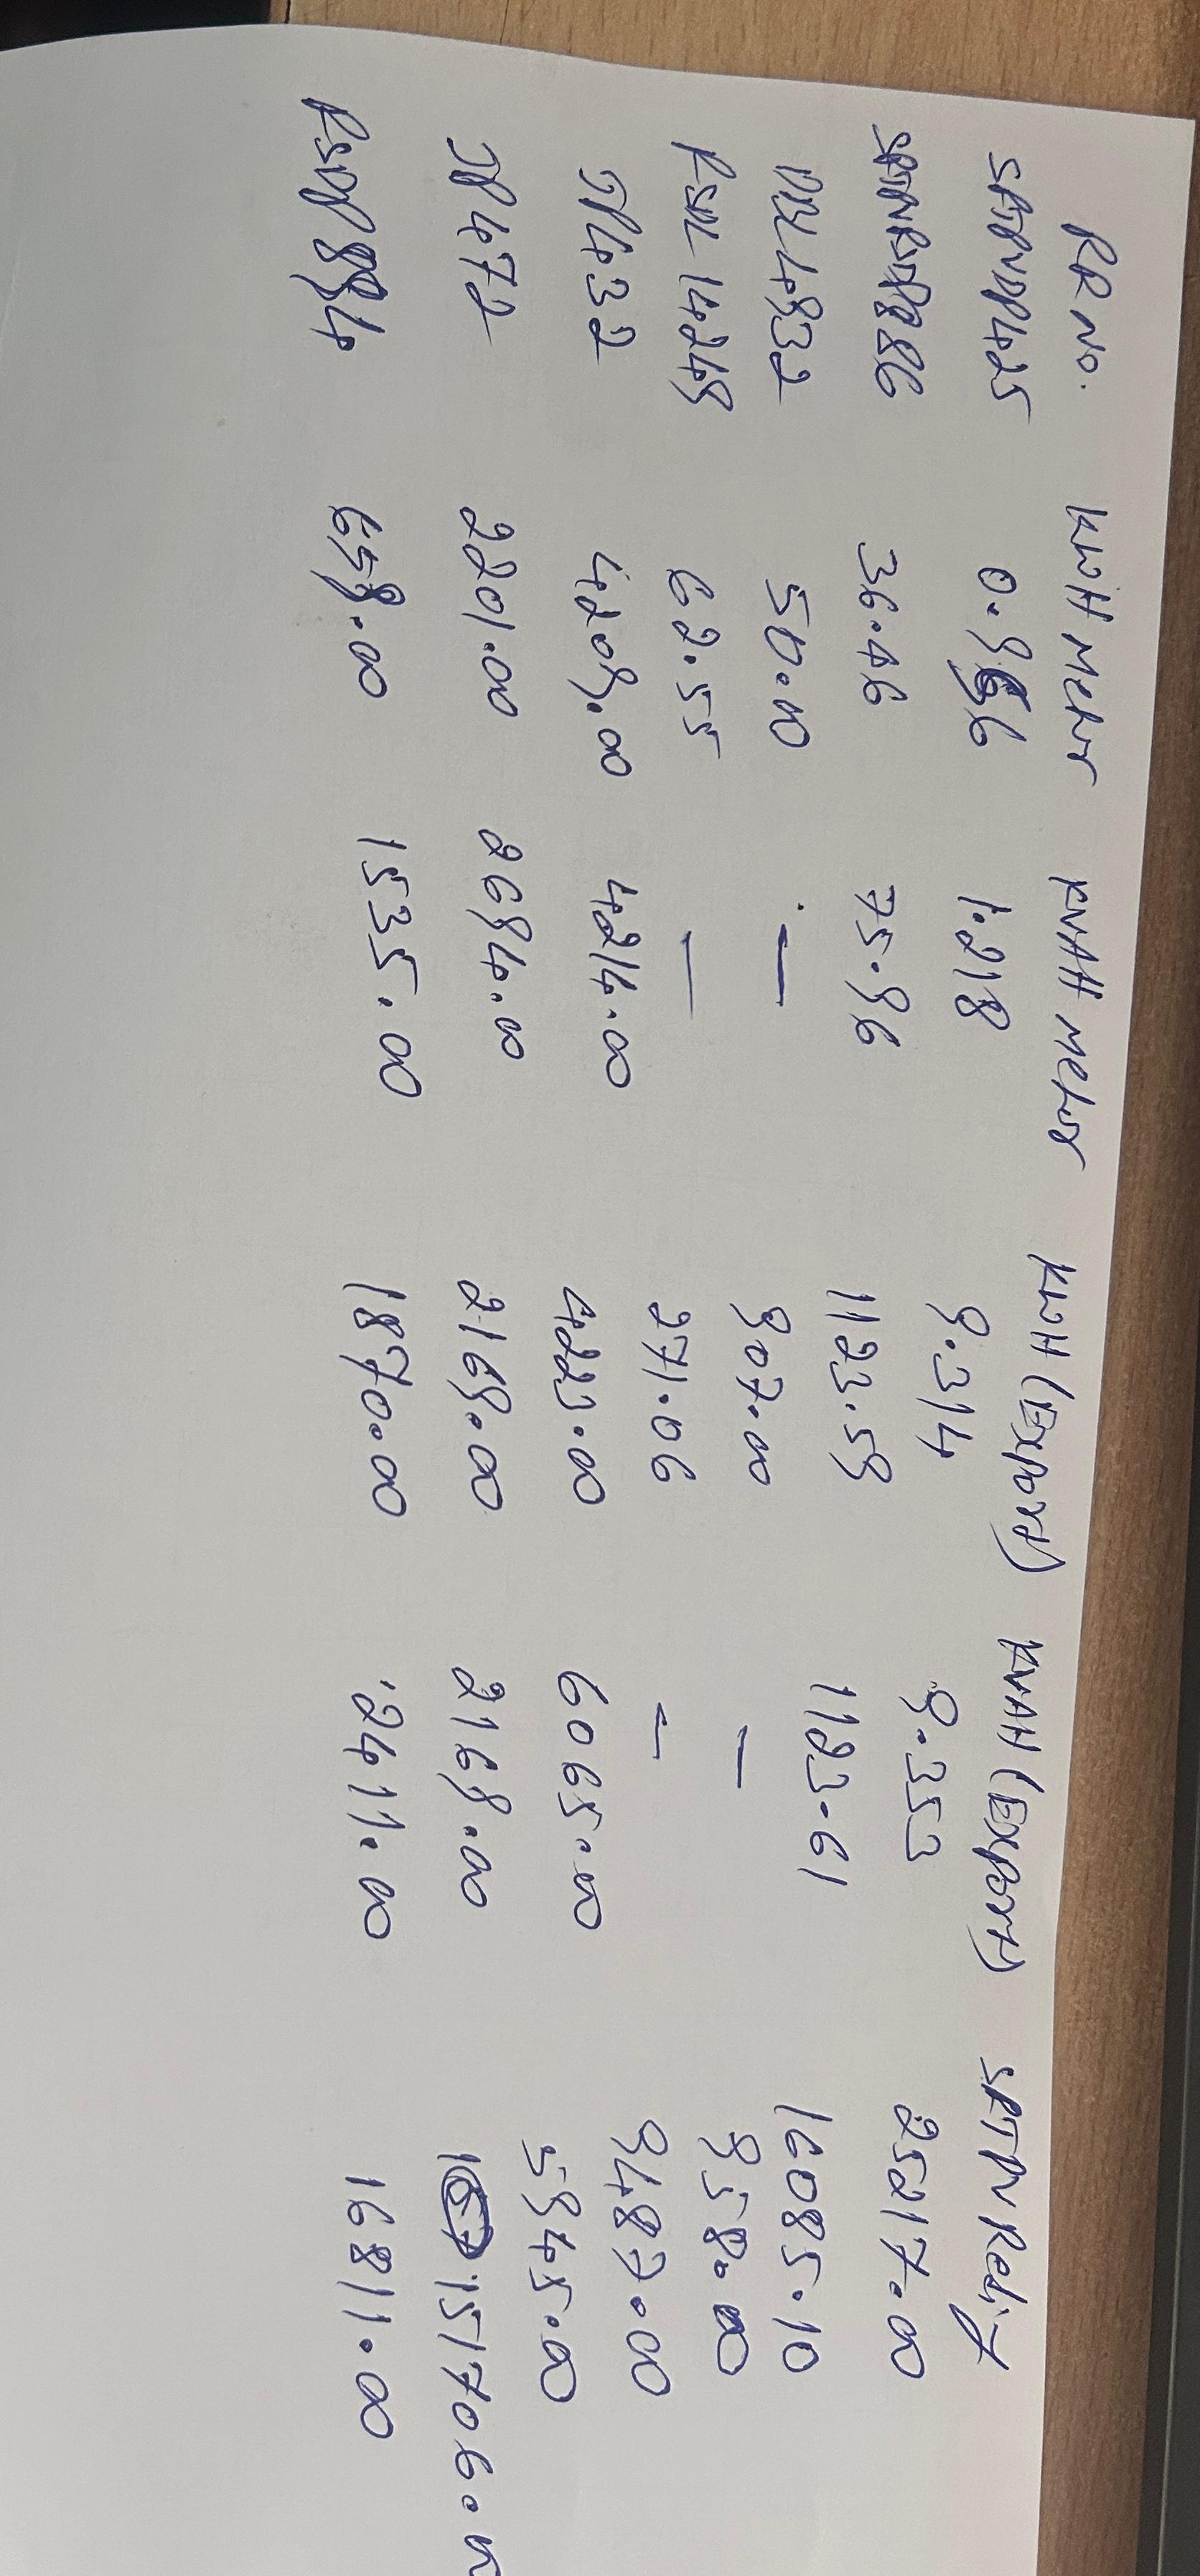 RR NO. KWH Meter KVAH Meter KWH (Export) KVAH (Export) SRTPV Redig
SRTPV1425 0.996 1.218 9.314 9.353 25217.00
36.46 75.96 1123.59 1123.61 16085.10
DEL4932 50.00 — 907.00 — 958.00
RSUL14249 62.55 — 271.06 — 9487.00
JP432 4209.00 4214.00 4223.00 6065.00 5945.00
JP472 2201.00 2694.00 2169.00 2169.00 151706.00
659.00 1535.00 1870.00 2411.00 16811.00